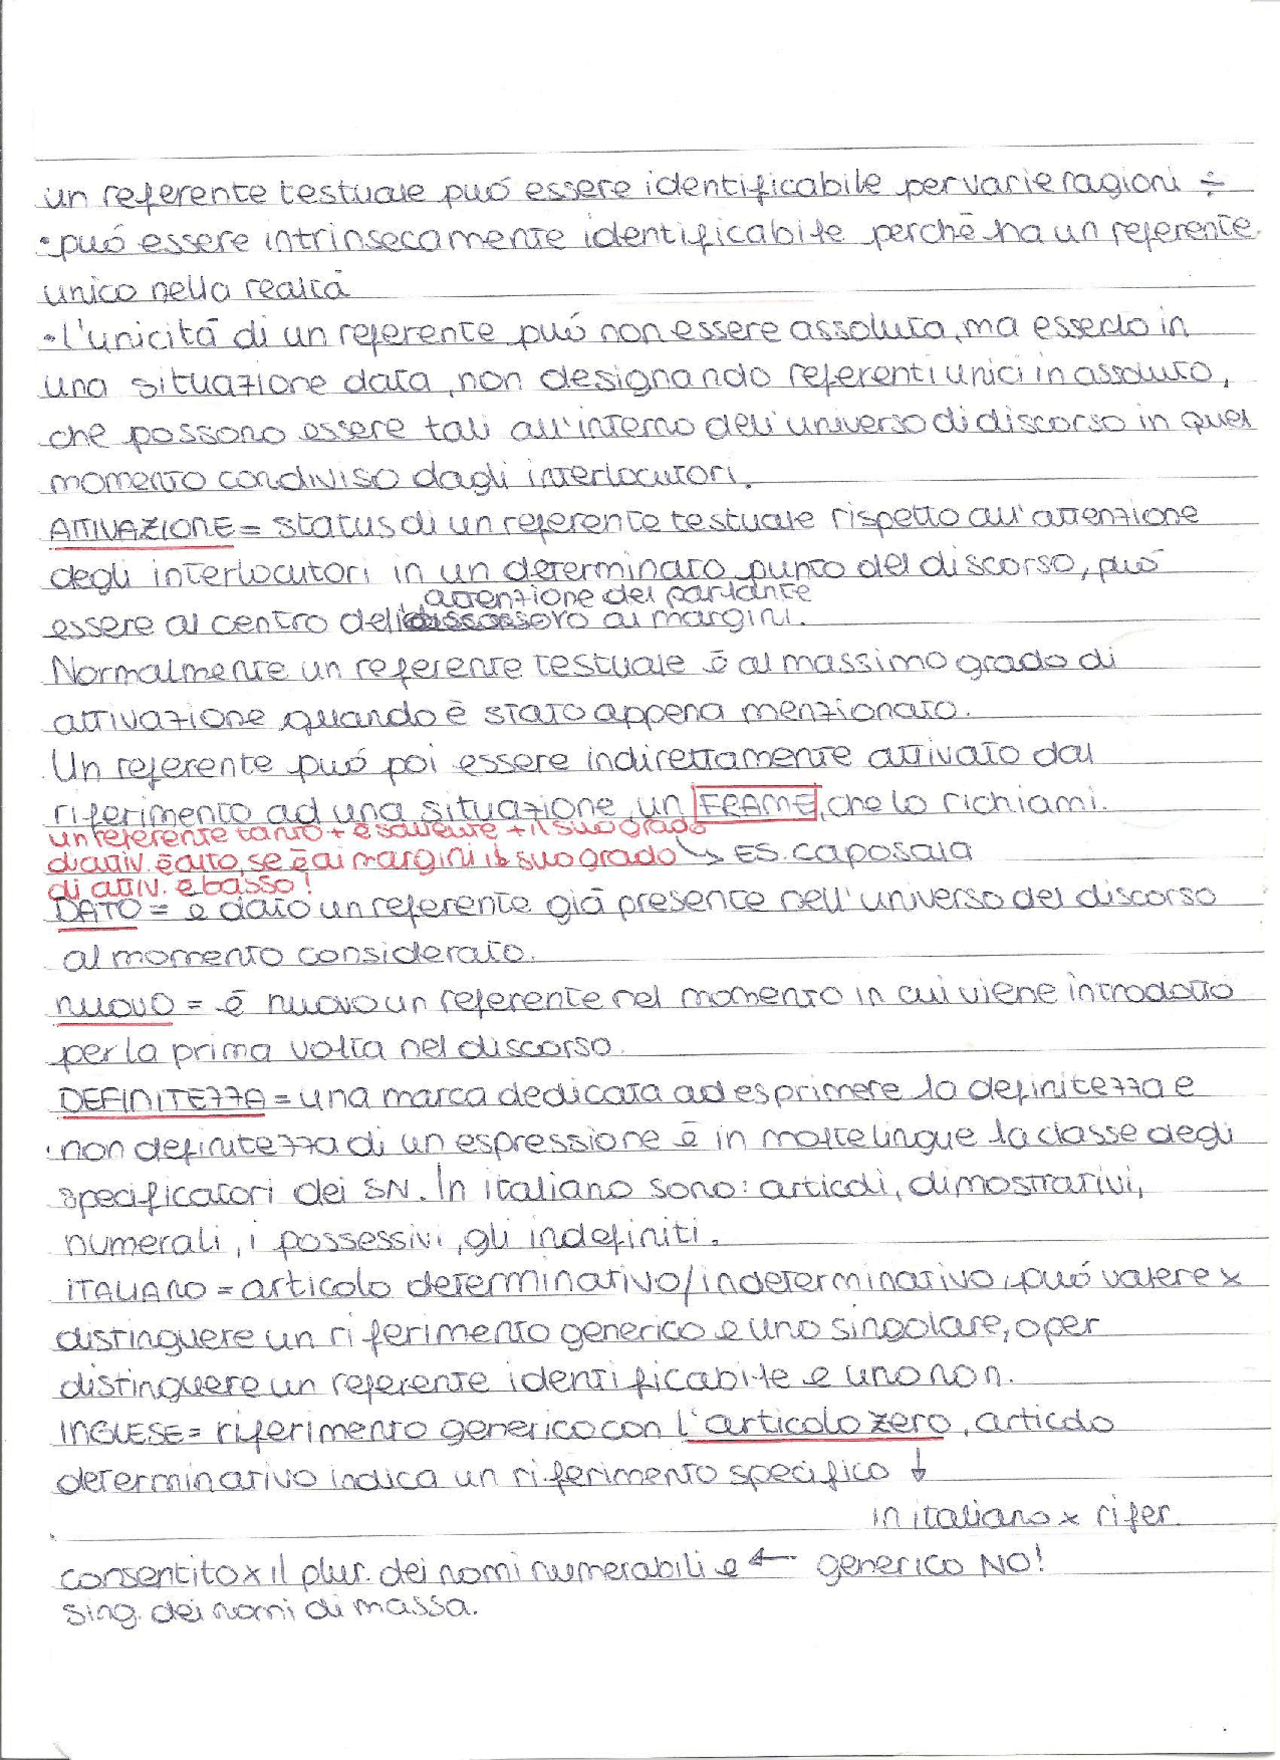 un referente testuale può essere identificabile per varie ragioni ÷
• può essere intrinsecamente identificabile perchè ha un referente
unico nella realtà
• l'unicità di un referente può non essere assoluta, ma esserlo in
una situazione data, non designando referenti unici in assoluto,
che possono essere tali all'interno dell'universo di discorso in quel
momento condiviso dagli interlocutori.
ATTIVAZIONE = status di un referente testuale rispetto all'attenzione
degli interlocutori in un determinato punto del discorso, può
attenzione del parlante
essere al centro dell' o ai margini.
Normalmente un referente testuale è al massimo grado di
attivazione quando è stato appena menzionato.
Un referente può poi essere indirettamente attivato dal
riferimento ad una situazione, un FRAME, che lo richiami.
un referente tanto + è saliente + il suo grado
di attiv. è alto, se è ai margini il suo grado ↳ ES. caposala
di attiv. è basso!
DATO = è dato un referente già presente nell'universo del discorso
al momento considerato.
NUOVO = è nuovo un referente nel momento in cui viene introdotto
per la prima volta nel discorso.
DEFINITEZZA = una marca dedicata ad esprimere la definitezza e
non definitezza di un espressione è in molte lingue la classe degli
specificatori dei SN. In italiano sono: articoli, dimostrativi,
numerali, i possessivi, gli indefiniti.
ITALIANO = articolo determinativo/indeterminativo, può valere x
distinguere un riferimento generico e uno singolare, o per
distinguere un referente identificabile e uno non.
INGLESE = riferimento generico con l'articolo zero, articolo
determinativo indica un riferimento specifico ↓
in italiano x rifer.
consentito x il plur. dei nomi numerabili e ← generico NO!
sing. dei nomi di massa.